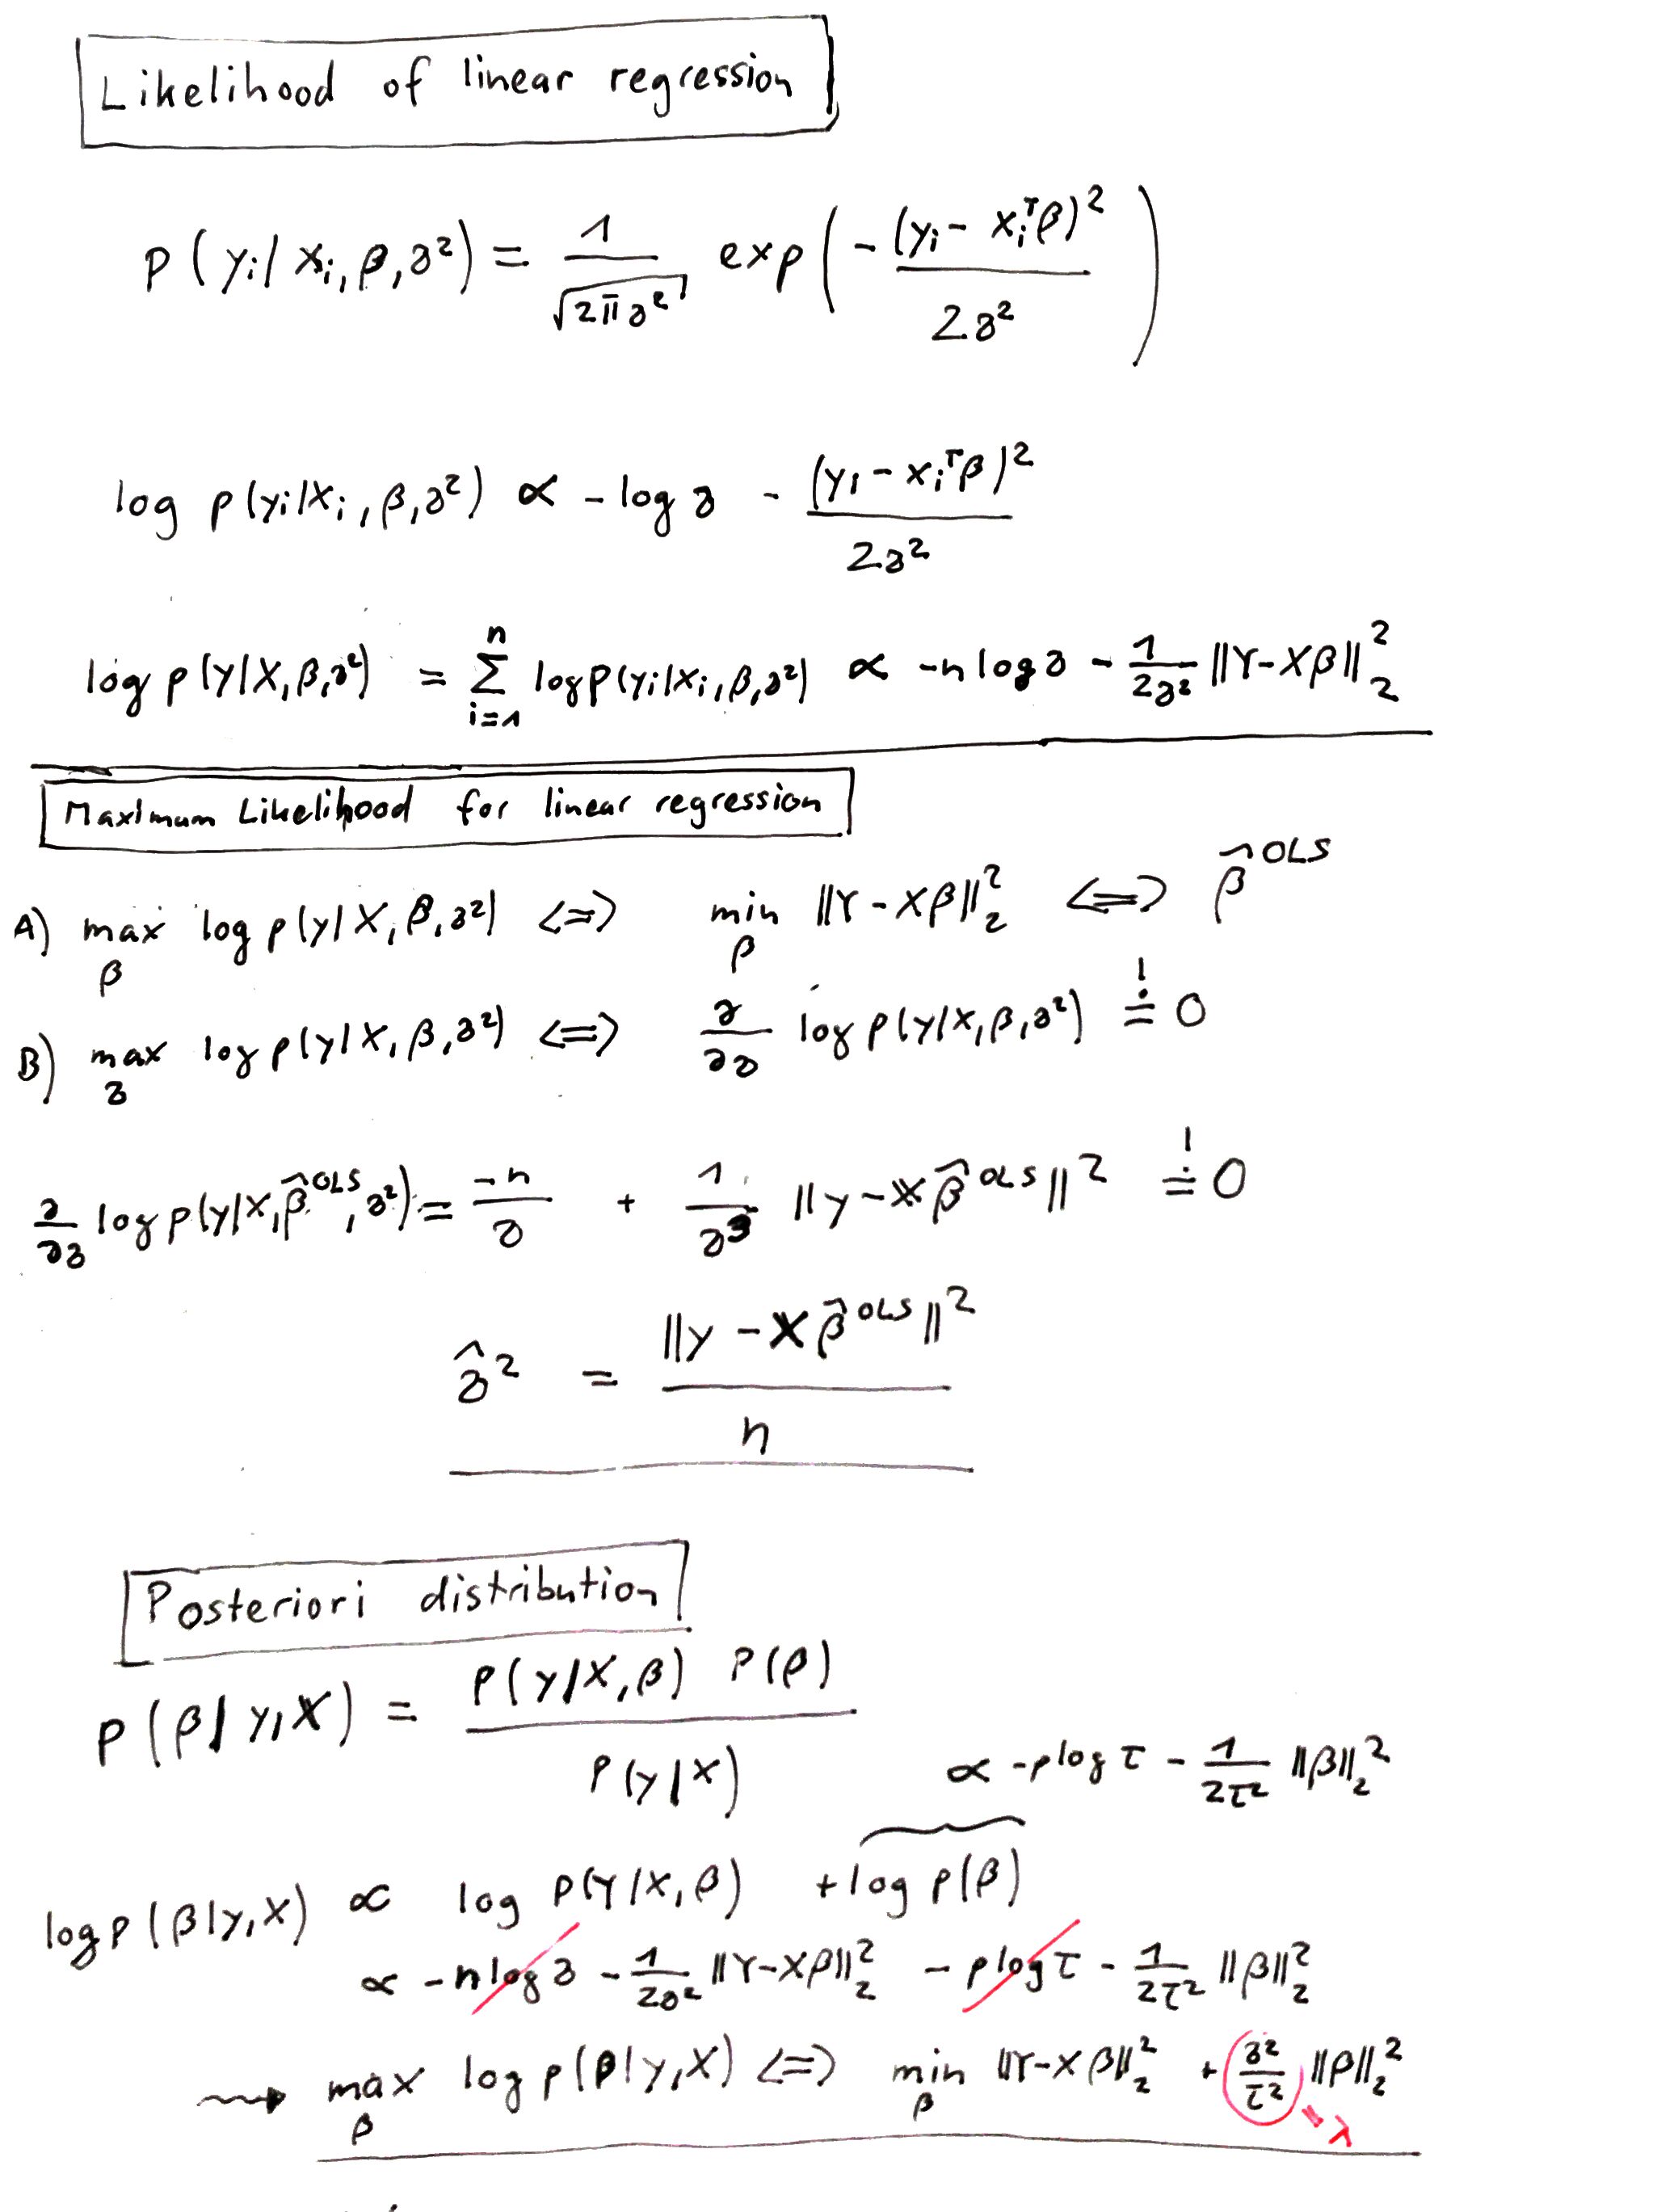 Likelihood of linear regression
p(yᵢ|xᵢ, β, σ²) = 1/√(2πσ²) exp(-(yᵢ - xᵢᵀβ)²/(2σ²))
log p(yᵢ|xᵢ, β, σ²) ∝ -log σ - (yᵢ - xᵢᵀβ)²/(2σ²)
log p(y|X, β, σ²) = Σᵢ₌₁ⁿ log p(yᵢ|xᵢ, β, σ²) ∝ -n log σ - 1/(2σ²) ||Y-Xβ||₂²
Maximum Likelihood for linear regression
A) max_β log p(y|X, β, σ²) <=> min_β ||Y-Xβ||₂² <=> β̂^OLS
B) max_σ log p(y|X, β, σ²) <=> ∂/∂σ log p(y|X, β, σ²) =! 0
∂/∂σ log p(y|X, β̂^OLS, σ²) = -n/σ + 1/σ³ ||y-Xβ̂^OLS||² =! 0
σ̂² = ||y-Xβ̂^OLS||²/n
Posteriori distribution
p(β|y,X) = P(y|X,β) P(β)/P(y|X)
∝ -p log τ - 1/(2τ²) ||β||₂²
log p(β|y,X) ∝ log p(Y|X,β) + log p(β)
∝ -n log σ - 1/(2σ²) ||Y-Xβ||₂² - p log τ - 1/(2τ²) ||β||₂²
⇝ max_β log p(β|y,X) <=> min_β ||Y-Xβ||₂² + σ²/τ² ||β||₂²
= λ